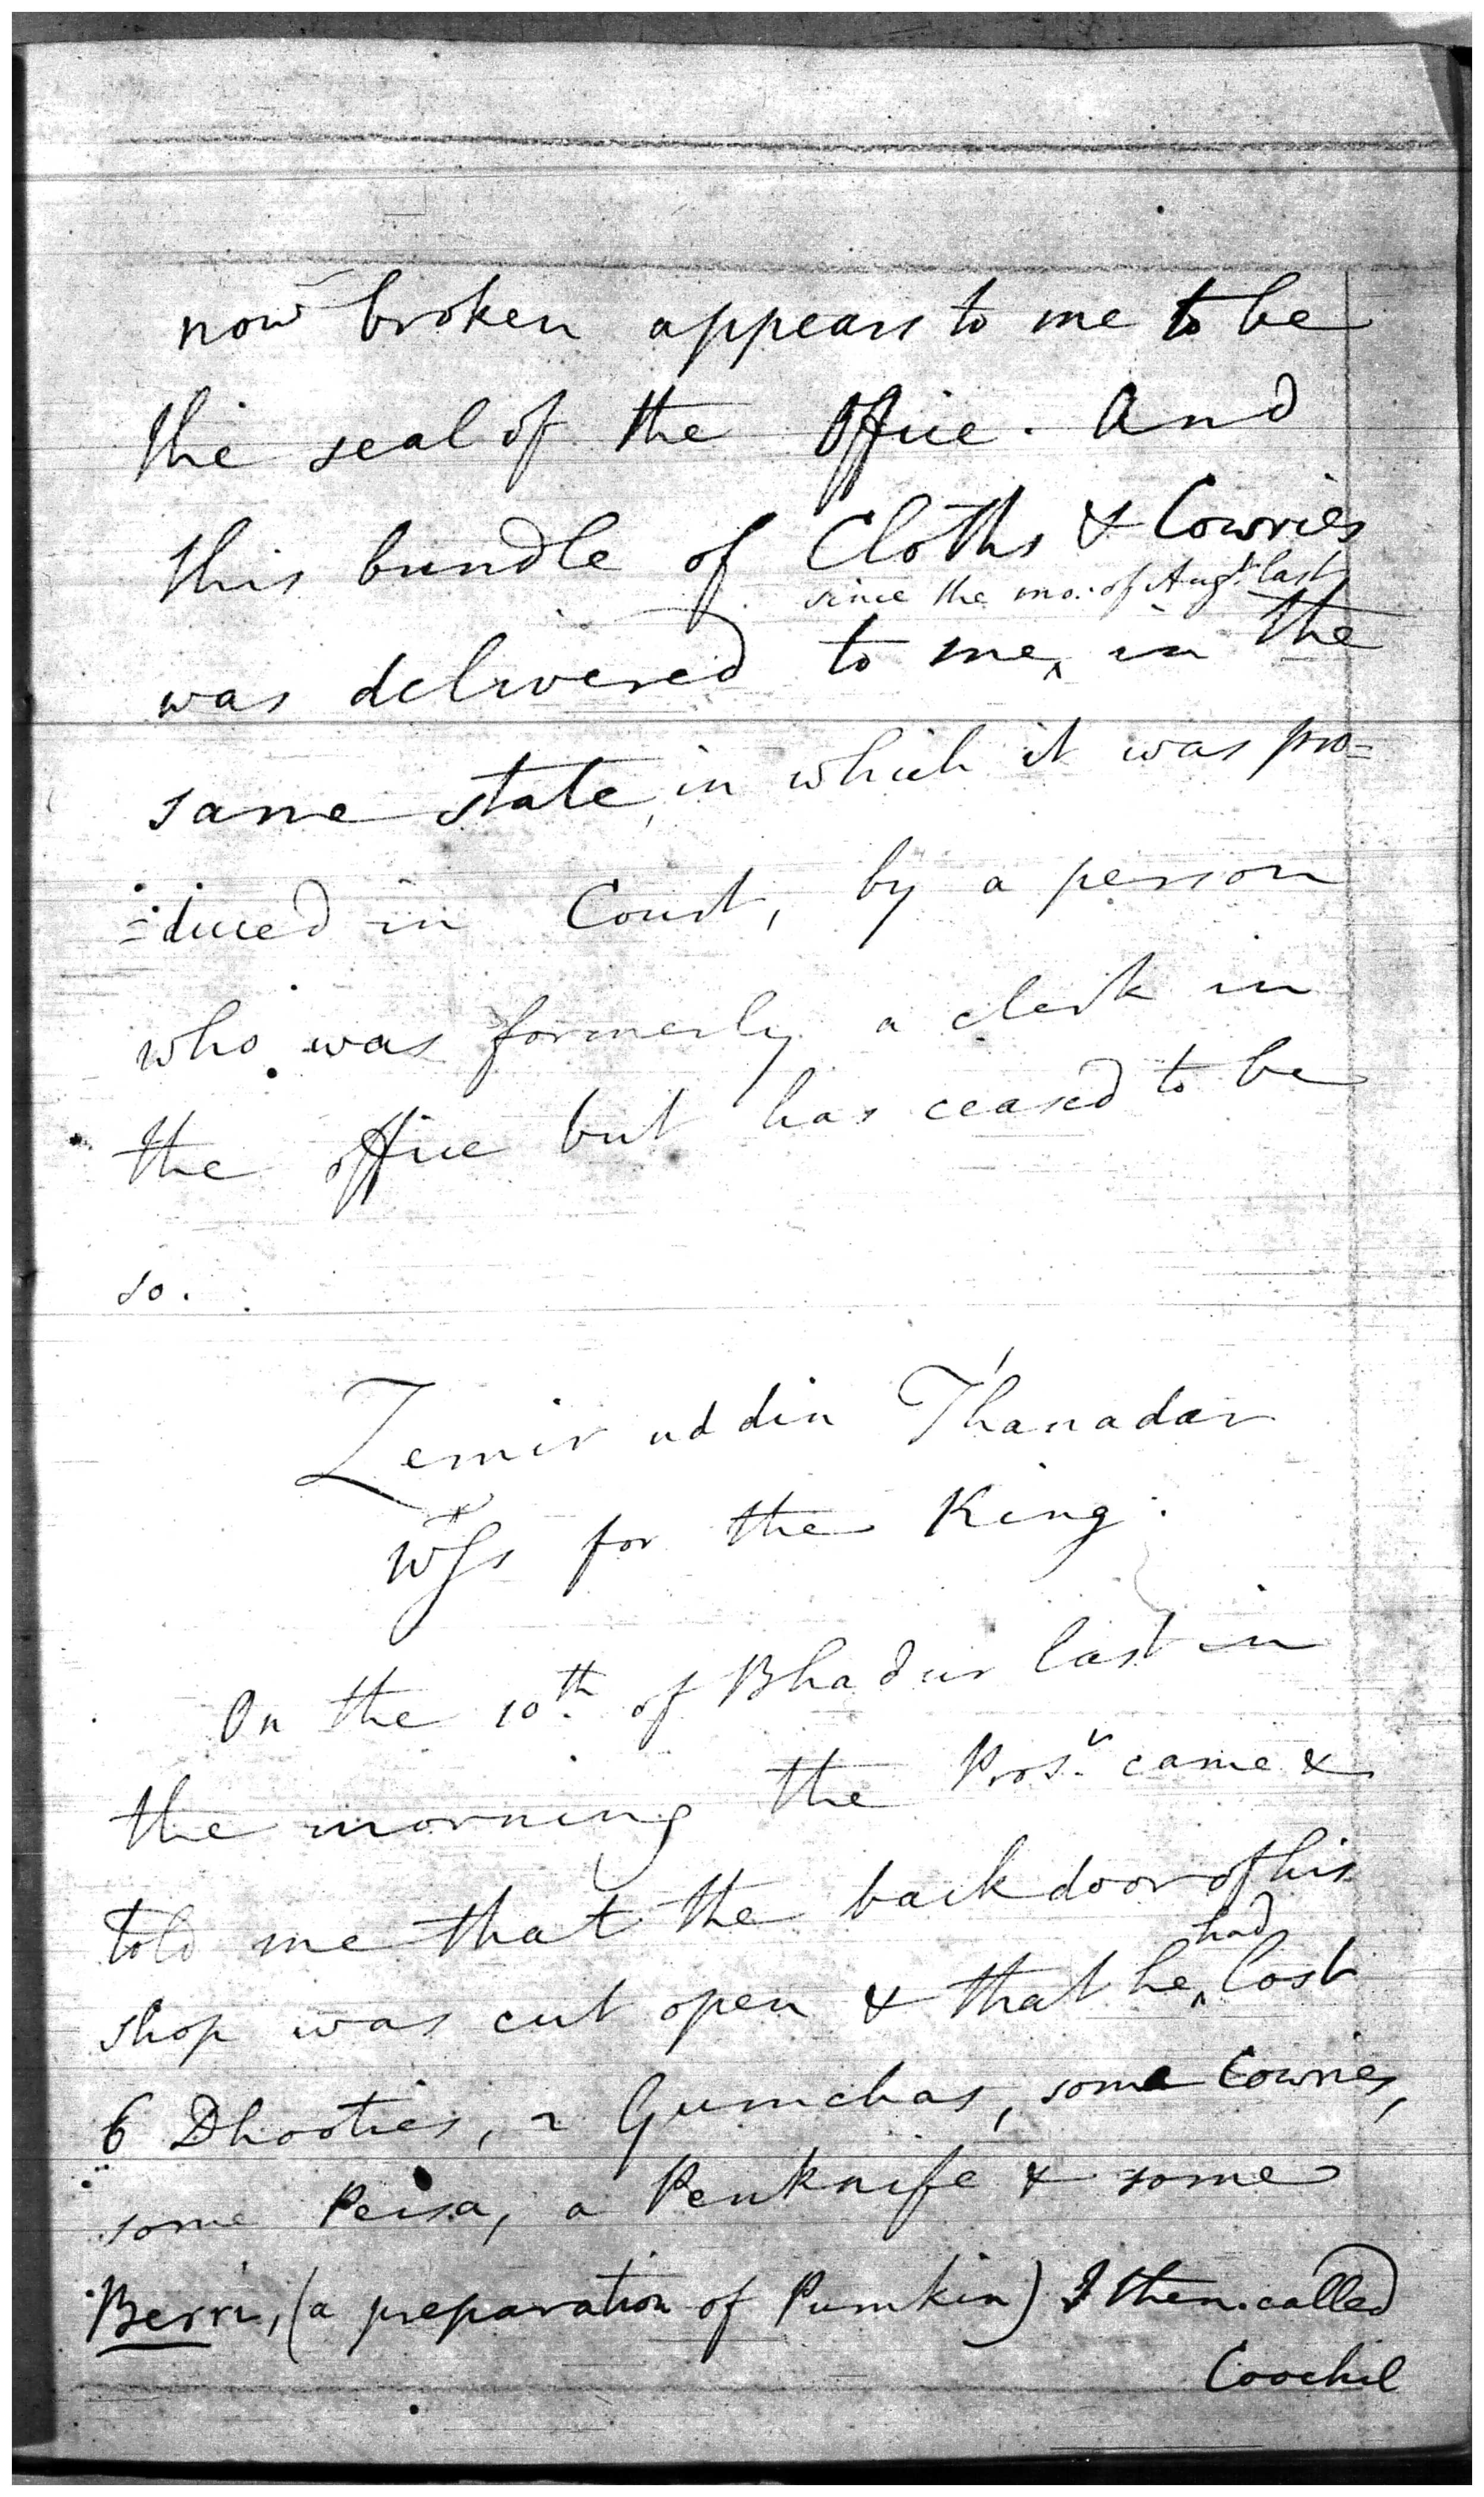 now broken appears to me to be
the seal of the Office. And
this bundle of Cloths & Cowries
since the mo: of Augt. last
was delivered to me ‸ in the
same state, in which it was pro=
=duced in Court, by a person
who was formerly a clerk in
the office but has ceased to be
so.
Zemir uddin Thanadar
for the King.
On the 10th. of Bhadur last in
the morning the Prosr. came &
told me that the back door of his
had
shop was cut open & that he ‸ lost
6 Dhooties, 2 Gumchas, some Cowries,
some Peisa, a Penknife & some
Berri, (a preparation of Pumkin) I then called
Coochil